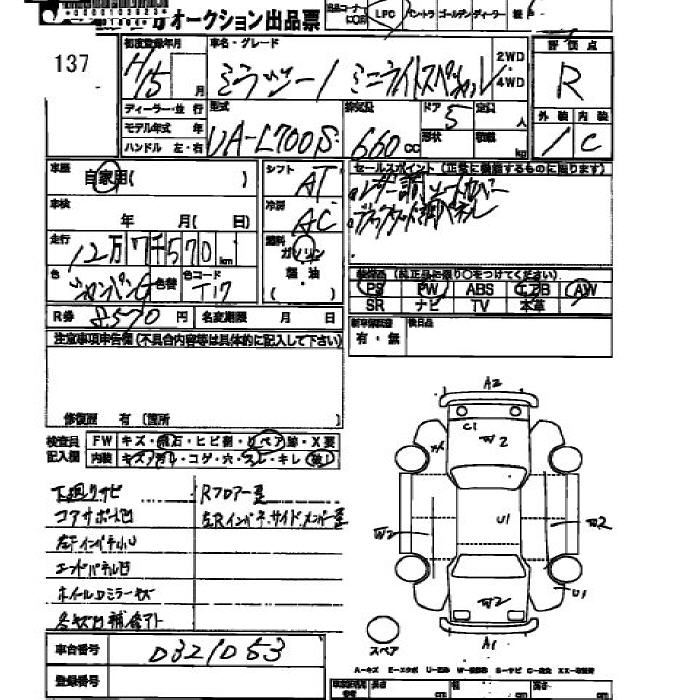 オークション出品票
出品コーナー LPC バントラ ゴールデン ディーラー
137
初度登録年月 H15 月
車名・グレード ミラジーノ ミニライトスペシャル 2WD 4WD
評価点 R
外装 内装
1 C
ディーラー・並行
モデル年式 年
ハンドル 左・右
型式 UA-L700S
排気量 660 cc
ドア 5
形状
定員 人
積載 kg
車歴 自家用( )
車検 年 月( 日)
走行 12万7千570 km
色 シャンパンG 色替 色コード T17
R券 8,570 円 名変期限 月 日
シフト AT
冷房 AC
燃料 ガソリン 軽油 ( )
セールスポイント (正常に機能するものに限ります)
レザー調シートカバー
ウッド調パネル
装備品 (純正品に限り○をつけてください)
PS PW ABS エアB AW
SR ナビ TV 本革
新車保証書 有・無 後日品
注意事項申告欄 (不具合内容等は具体的に記入して下さい)
修復歴 有 〔箇所
検査員記入欄
FW キズ・飛石・ヒビ割・リペア跡・X要
内装 キズ・汚レ・コゲ・穴・スレ・キレ・(無し)
下廻りサビ
Rフロアー歪
コアサポート凹
左Rインパネ、サイドメンバー歪
左Fインパネ小凹
エンドパネル凹
ホイールDミラーキズ
各キズ凹補修アト
A2
C1
W2
U1
W2
W2
W2
U1
A1
スペア
A-キズ E-エクボ U-凹み W-補修跡 S-サビ C-腐食 XX-取替済
車台番号 0321053
登録番号
長さ cm 幅 cm 高さ cm